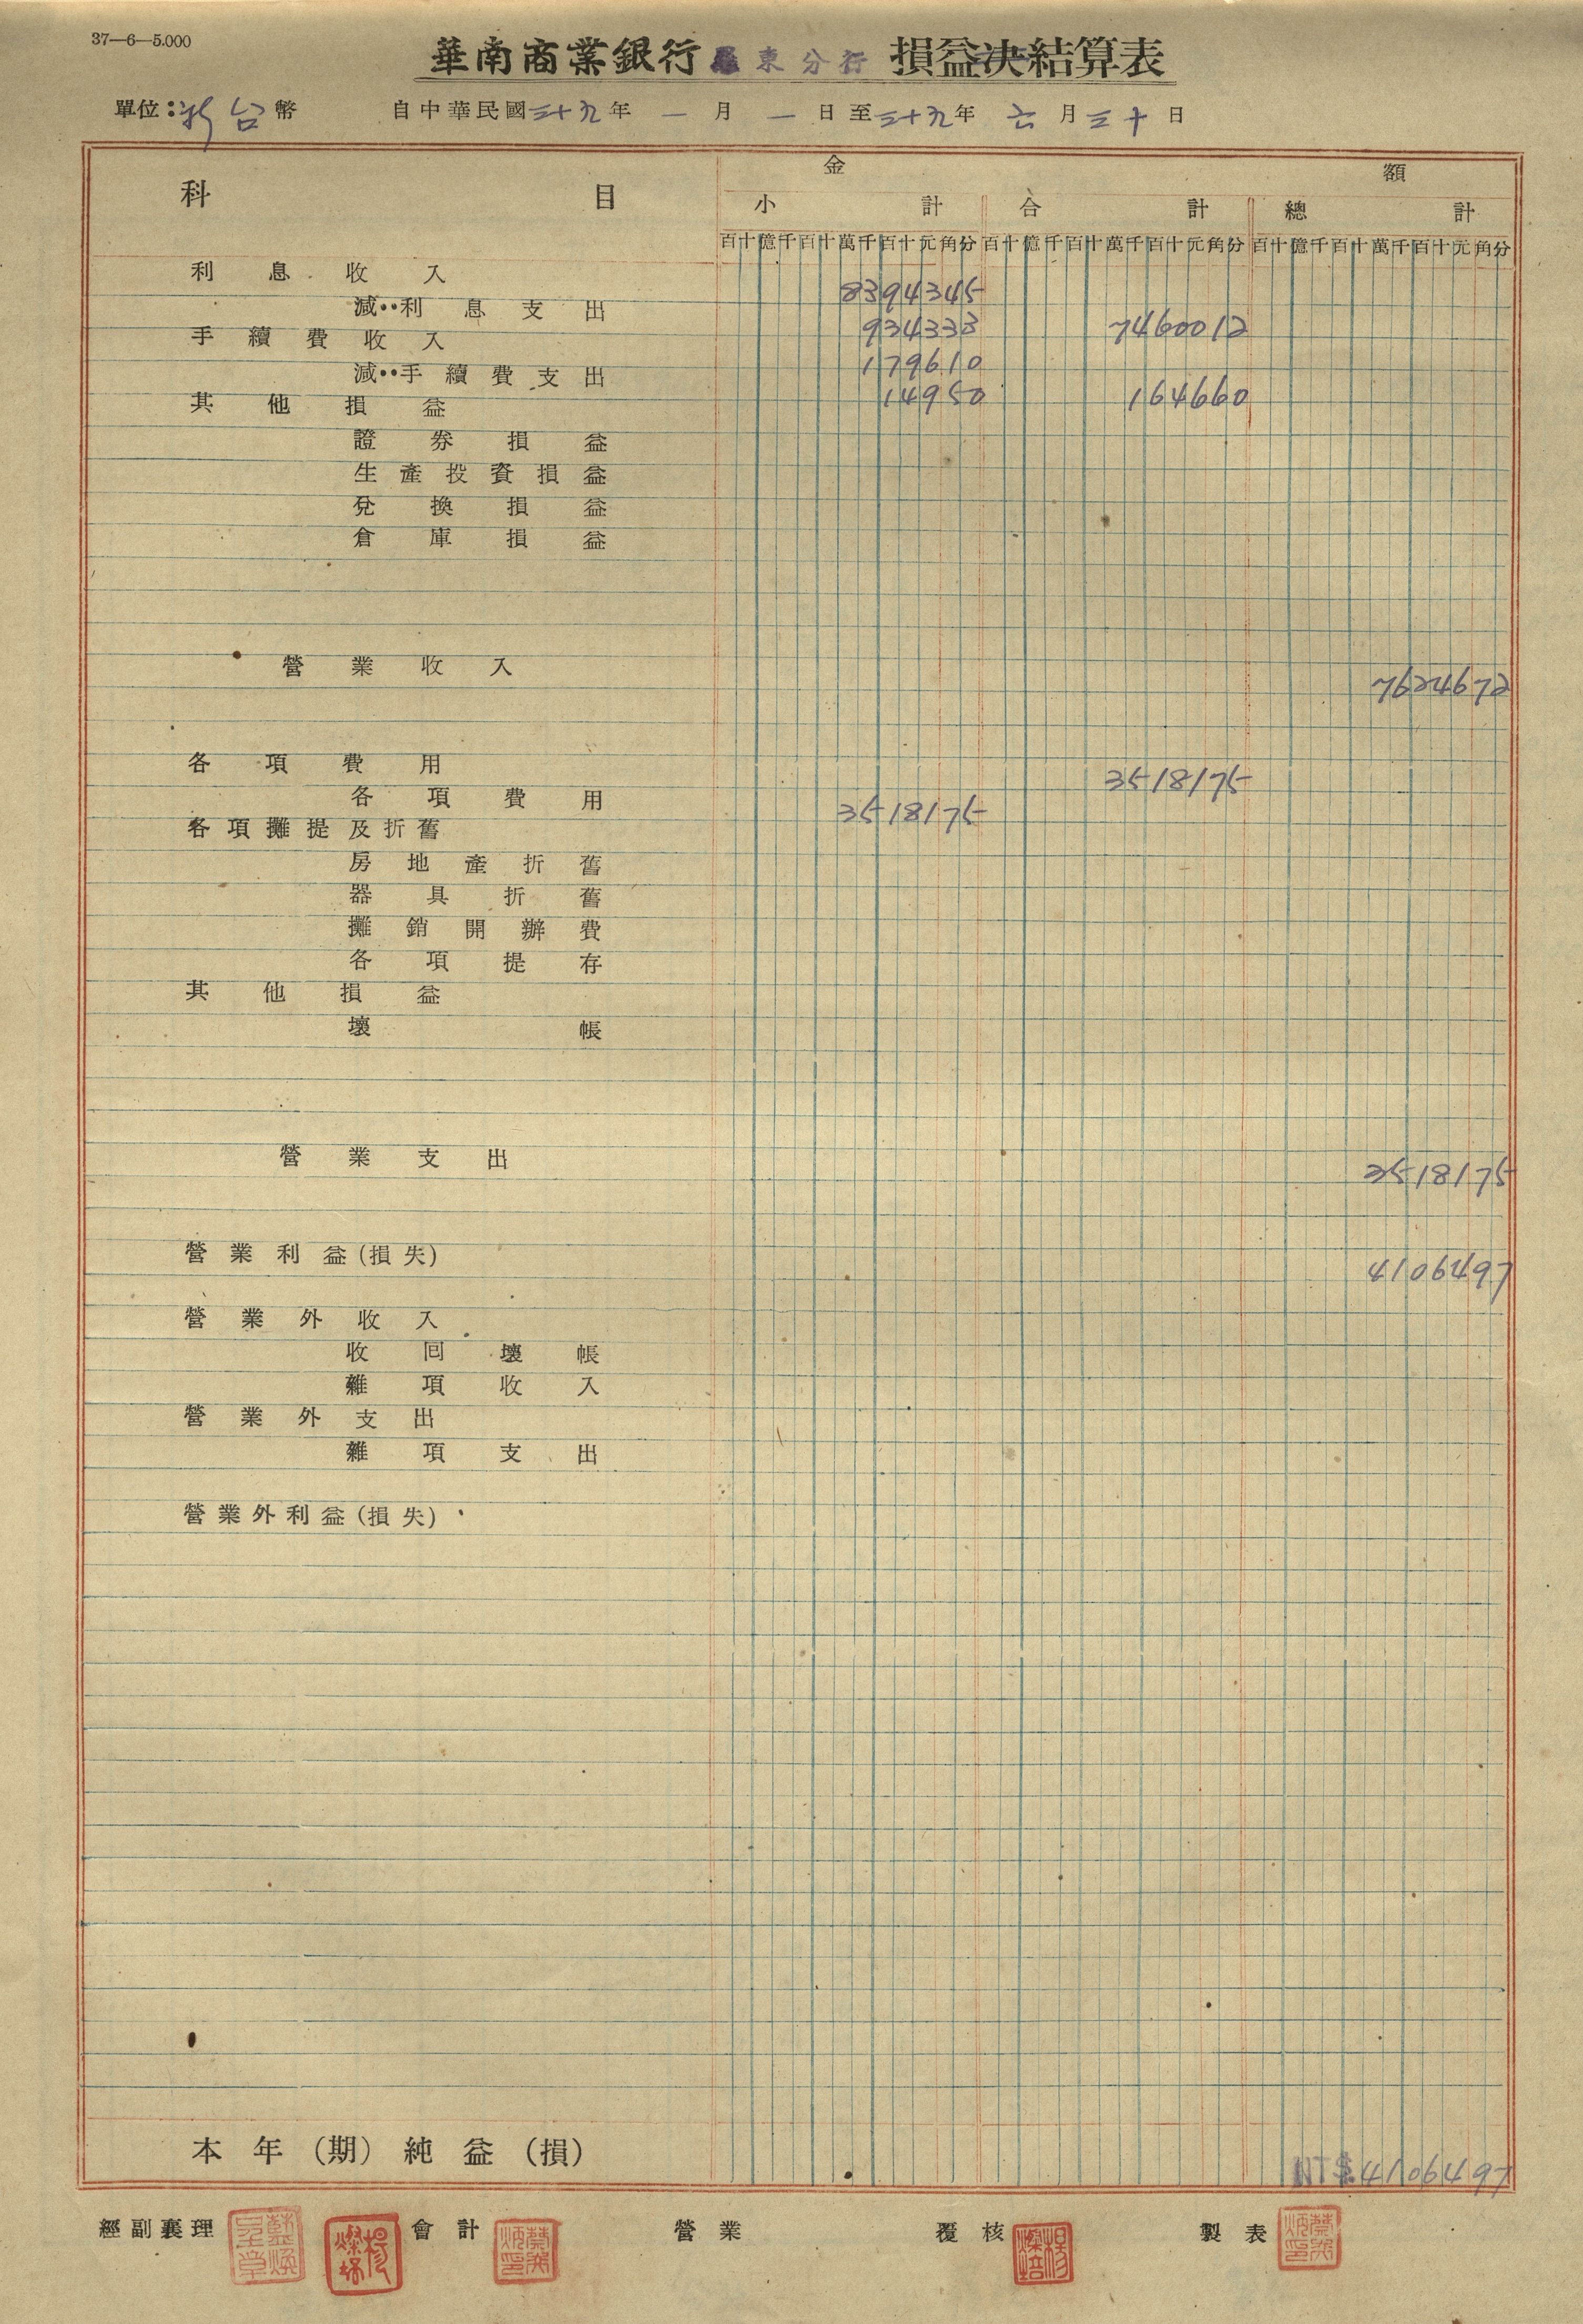 37—6—5.000
華南商業銀行羅東分行 損益决結算表
單位：新台幣 自中華民國三十九年 一 月 一 日至三十九年 六 月三十日
科 目 金 額
小 計 合 計 總 計
百十億千百十萬千百十元角分 百十億千百十萬千百十元角分 百十億千百十萬千百十元角分
利息收入 8394345
減：利息支出 934333 7460012
手續費收入 179610
減：手續費支出 14950 164660
其他損益
證券損益
生產投資損益
兌換損益
倉庫損益
營業收入 7624672
各項費用 3518175
各項費用 3518175
各項攤提及折舊
房地產折舊
器具折舊
攤銷開辦費
各項提存
其他損益
壞帳
營業支出 3518175
營業利益(損失) 4106497
營業外收入
收回壞帳
雜項收入
營業外支出
雜項支出
營業外利益(損失)
本年(期)純益(損) NT$4106497
經副襄理 會計 營業 覆核 製表